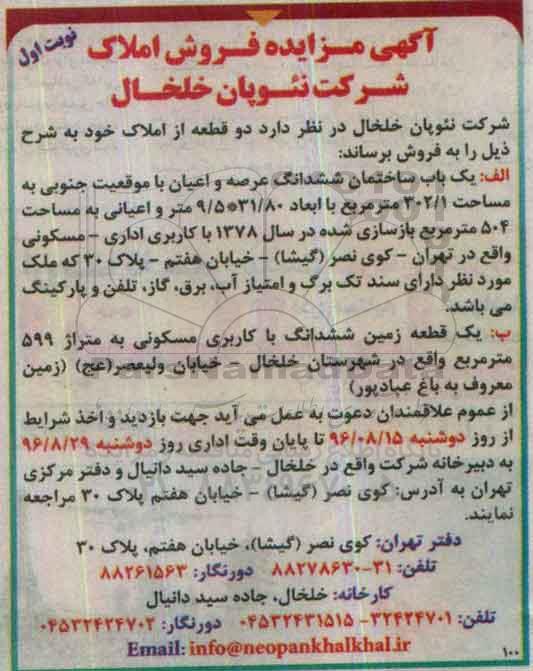 نوبت اول
آگهی مـزایده فـروش املاک
شـرکت نئـوپان خلخـال
شرکت نئوپان خلخال در نظر دارد دو قطعه از املاک خود به شرح
ذیل را به فروش برساند:
الف: یک باب ساختمان ششدانگ عرصه و اعیان با موقعیت جنوبی به
مساحت ۳۰۲/۱ مترمربع با ابعاد ۳۱/۸۰*۹/۵ متر و اعیانی به مساحت
۵۰۴ مترمربع بازسازی شده در سال ۱۳۷۸ با کاربری اداری - مسکونی
واقع در تهران - کوی نصر (گیشا) - خیابان هفتم - پلاک ۳۰ که ملک
مورد نظر دارای سند تک برگ و امتیاز آب، برق، گاز، تلفن و پارکینگ
می باشد.
ب: یک قطعه زمین ششدانگ با کاربری مسکونی به متراژ ۵۹۹
مترمربع واقع در شهرستان خلخال - خیابان ولیعصر(عج) (زمین
معروف به باغ عبادپور)
از عموم علاقمندان دعوت به عمل می آید جهت بازدید و اخذ شرایط
از روز دوشنبه ۹۶/۰۸/۱۵ تا پایان وقت اداری روز دوشنبه ۹۶/۸/۲۹
به دبیرخانه شرکت واقع در خلخال - جاده سید دانیال و دفتر مرکزی
تهران به آدرس: کوی نصر (گیشا) - خیابان هفتم پلاک ۳۰ مراجعه
نمایند.
دفتر تهران: کوی نصر (گیشا)، خیابان هفتم، پلاک ۳۰
تلفن: ۳۱-۸۸۲۷۸۶۳۰ دورنگار: ۸۸۲۶۱۵۶۳
کارخانه: خلخال، جاده سید دانیال
تلفن: ۳۲۴۲۴۷۰۱-۰۴۵۳۲۴۳۱۵۱۵ دورنگار: ۰۴۵۳۲۴۲۴۷۰۲
Email: info@neopankhalkhal.ir
۱۰۰